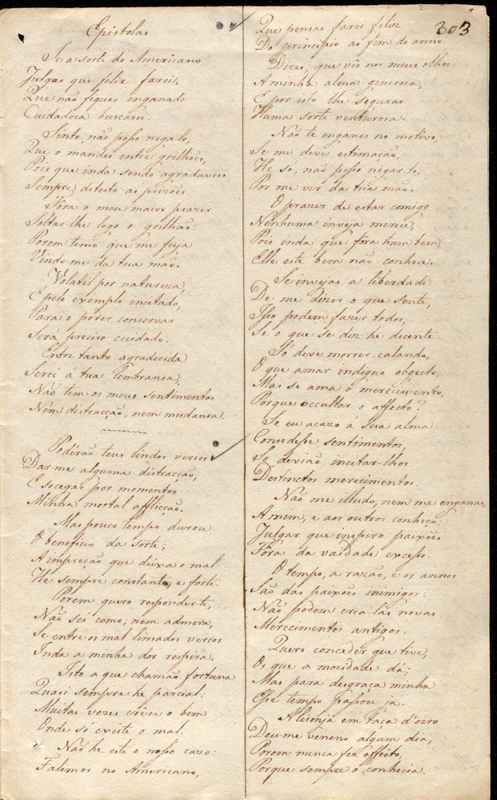 303
Epistolas
Se a sorte do Americano
Julgas que feliz farei,
Que não fiques enganado
Cuidadosa buscarei.
Sinto, não posso negalo,
Que o mandes entre grilhões,
Pois que inda sendo agradaveis
Sempre detesto as prizões
Fôra o meu maior prazer
Soltar-lhe logo o grilhão
Porem temo que me fuja
Vindo-me da tua mão.
Volatil por natureza,
E pelo exemplo incitado,
Para o poder conservar
Será preciso cuidado.
Entre tanto agradecida
Serei á tua lembrança,
Não tem os meus sentimentos
Nem distracção, nem mudança.
Poderão teus lindos versos
Dar-me alguma distracção,
E socegar por momentos
Minha mortal afflicção.
Mas pouco tempo durou
O beneficio da sorte;
A impreção que deixa o mal
He sempre constante, e forte.
Porem quero responder-te,
Não sei como, nem admira,
Se entre os mal limados versos
Inda a minha dor respira.
Isto a que chamão fortuna
Quasi sempre he parcial:
Muitas vezes crêmos o bem
Onde só existe o mal.
Não he este o nosso caso:
Falemos no Americano,
Que pensas farei feliz
Do principio ao fim do anno
Dizes, que vês nos meus olhos
A minha alma generosa,
E por isto lhe seguras
Huma sorte venturosa.
Não te enganes no motivo,
Se me deve estimação,
He só, não posso negar-to,
Por me vir da tua mão.
O prazer de estar comigo
Nenhuma inveja merece;
Pois inda que fora hum bem,
Elle este bem não conhece.
Se invejas a liberdade
De me dizer o que sente,
Isso podem fazer todos,
Se o que se diz he decente.
Só deve morrer calando,
O que amar indigno objecto,
Mas se ama o merecimento,
Porque occultar o affecto?
Se eu acaso á sua alma
Concedesse sentimentos,
Se devião incitar-lhos
Distinctos merecimentos.
Não me illudo, nem me engano,
A mim, e aos outros conheço,
Julgar que inspiro paixões
Fôra da vaidade excesso.
O tempo, a razão, e os annos
São das paixões inimigos:
Não podem criá-las novas
Merecimentos antigos.
Quero conceder que tive,
O, que a mocidade dá:
Mas para desgraça minha
Esse tempo passou já.
A lisonja em taça d'oiro
Deu-me veneno algum dia,
Porem nunca fez effeito,
Porque sempre o conhecia.